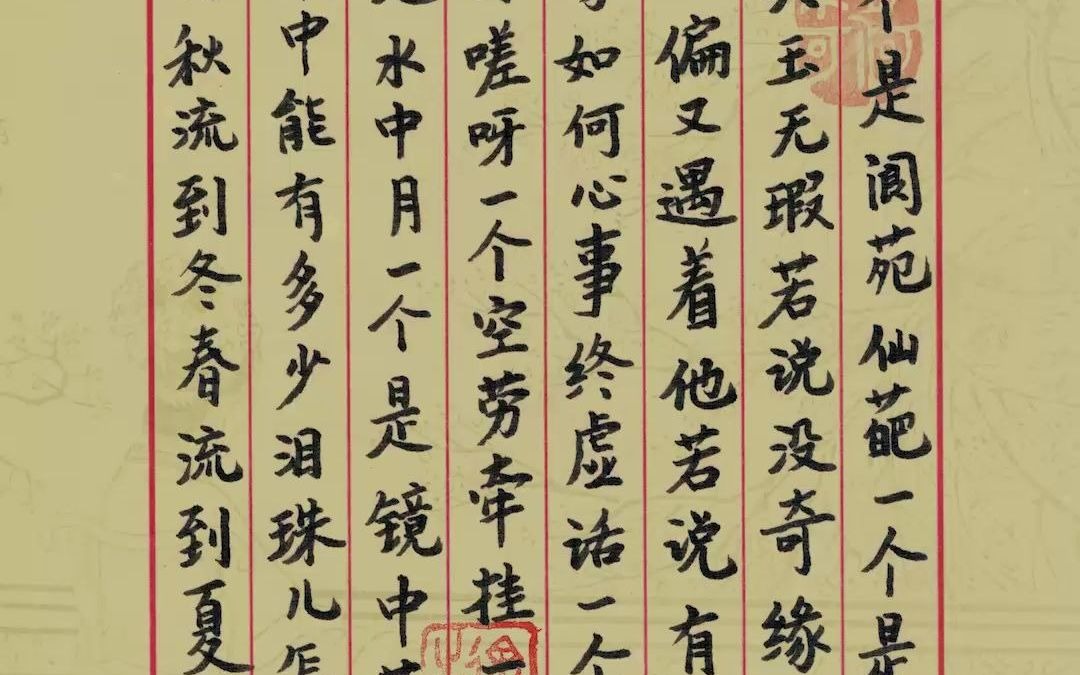 个是阆苑仙葩一个是
玉无瑕若说没奇缘
偏又遇着他若说有
如何心事终虚话一个
嗟呀一个空劳牵挂一
水中月一个是镜中
中能有多少泪珠儿
秋流到冬春流到夏